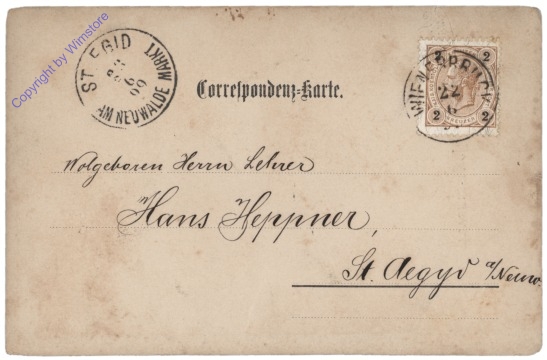 Copyright by Wimstore
ST. EGID
22
6
99
AM NEUWALDE MARKT
Correspondenz-Karte.
2 2
WIENERBRUCK
22
6
KREUZER
2 2
Wolgeboren Herrn Lehrer
Hans Heppner,
St. Aegyd a/Neuw.